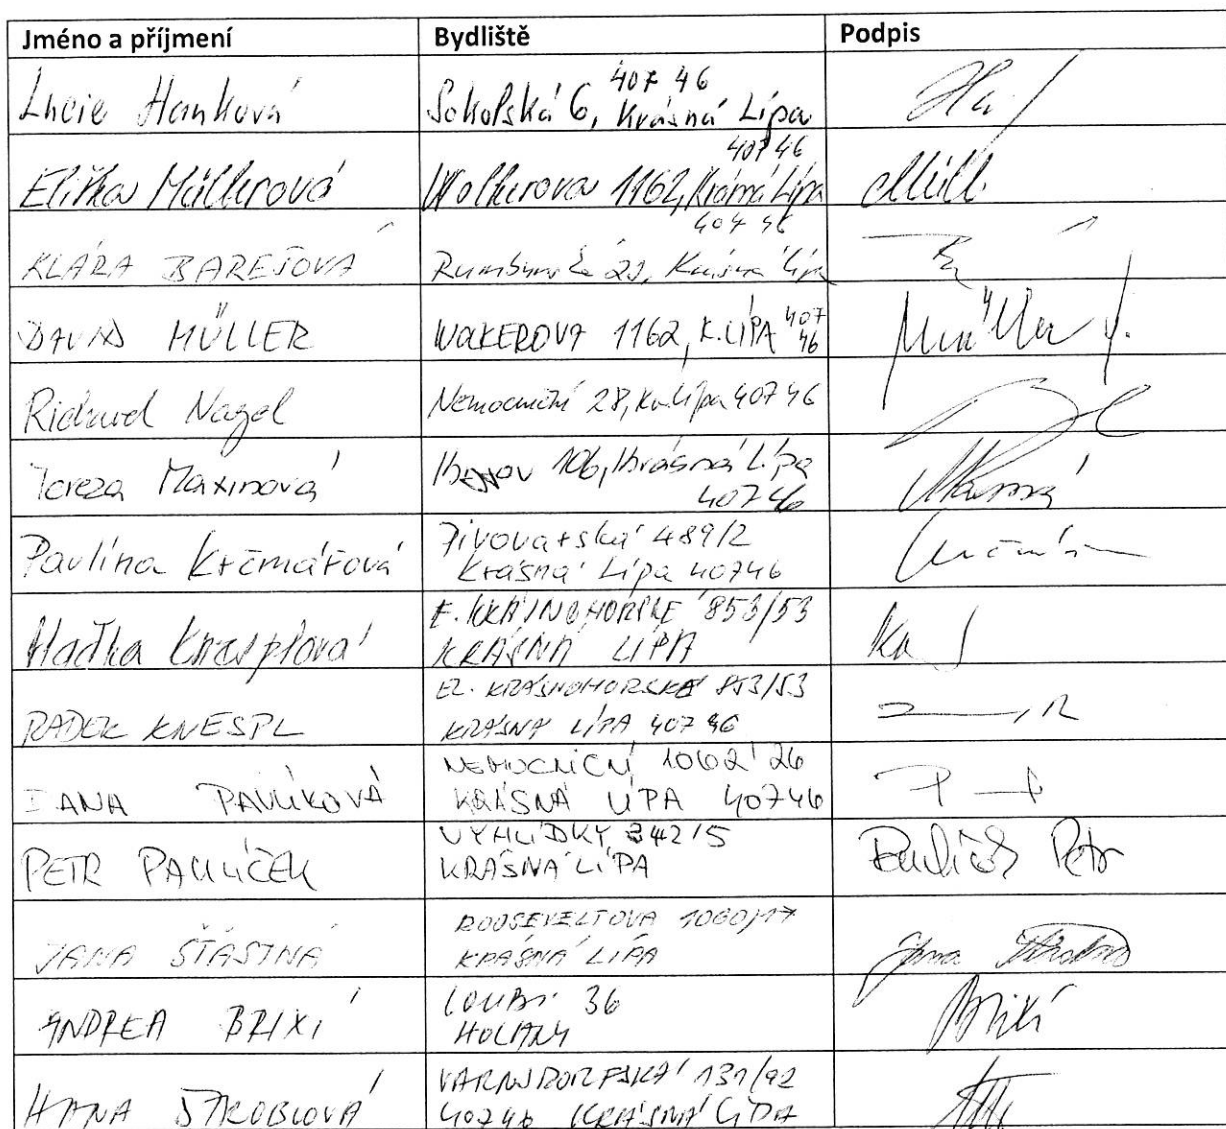 Jméno a příjmení Bydliště Podpis
Lucie Hanková Sokolská 6, Krásná Lípa 407 46
Eliška Müllerová Wolkerova 1162, Krásná Lípa 407 46
KLÁRA BAREŠOVÁ Rumburská 29, Krásná Lípa 407 46
DAVID MÜLLER WOLKEROVA 1162, K. LÍPA 407 46 Müller
Richard Nagel Nemocniční 28, Kr. Lípa 407 46
Tereza Maxinová 106, Krásná Lípa
40746
Pavlína Krčmářová Pivovarská 489/2
Krásná Lípa 40746
Knesplová E. KRÁSNOHORSKÉ 853/53
KRÁSNÁ LÍPA
RADEK KNESPL EL. KRÁSNOHORSKÉ 853/53
KRÁSNÁ LÍPA 407 46
PAVLÍKOVÁ NEMOCNIČNÍ 1062/26
KRÁSNÁ LÍPA 40746
PETR PAVLÍČEK VYHLÍDKY 342/5 Pavlíček Petr
KRÁSNÁ LÍPA
JANA ŠŤASTNÁ ROOSEVELTOVA 1060/17 Jana Šťastná
KRÁSNÁ LÍPA
ANDREA BRIXÍ LOUBÍ 36 Brixí
HOLANY
HANA ŠTROBLOVÁ VARNSDORFSKÁ 131/92
40746 KRÁSNÁ LÍPA